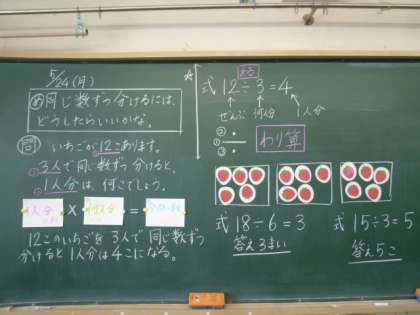 5/24(月)
め同じ数ずつ分けるには、
どうしたらいいかな。
問 いちごが12こあります。
3人で同じ数ずつ分けると、
1人分は、何こでしょう。
1人分 × = 
12このいちごを3人で同じ数ずつ
分けると1人分は4こになる。
わる
式 12÷3=4
ぜんぶ 何人分 1人分
わり算
式 18÷6=3
答え3まい
式 15÷3=5
答え5こ